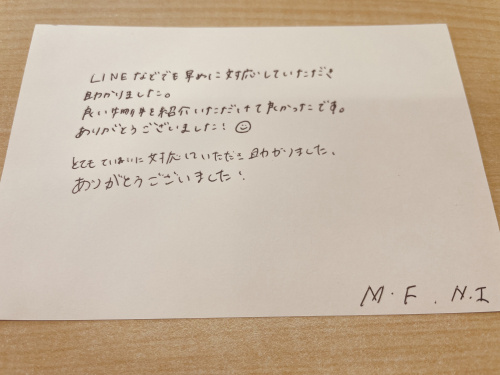 LINEなどでも早めに対応していただき
助かりました。
良い物件を紹介いただけて良かったです。
ありがとうございました!☺
とてもていねいに対応していただき助かりました、
ありがとうございました!
M.F . N.I